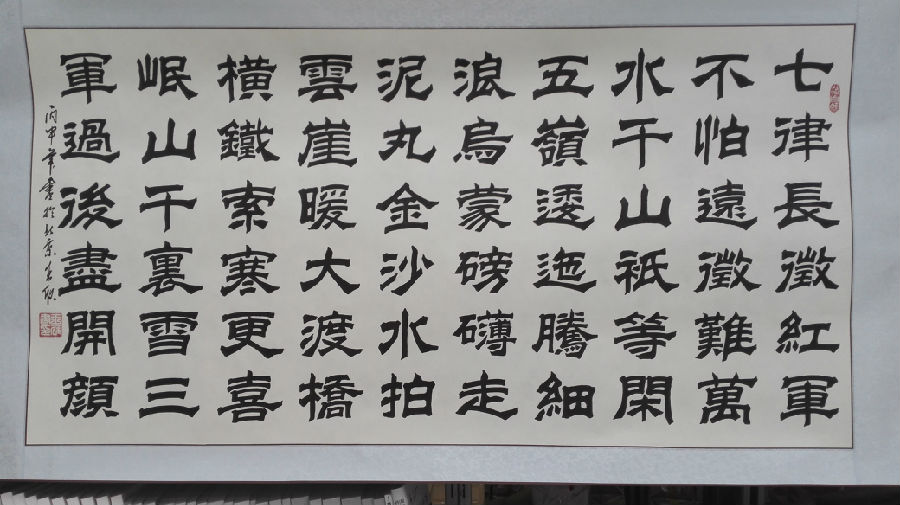 七律長徵紅軍
不怕遠徵難萬
水千山祇等閑
五嶺逶迤騰細
浪烏蒙磅礴走
泥丸金沙水拍
雲崖暖大渡橋
橫鐵索寒更喜
岷山千裏雪三
軍過後盡開顔
丙申年書於北京